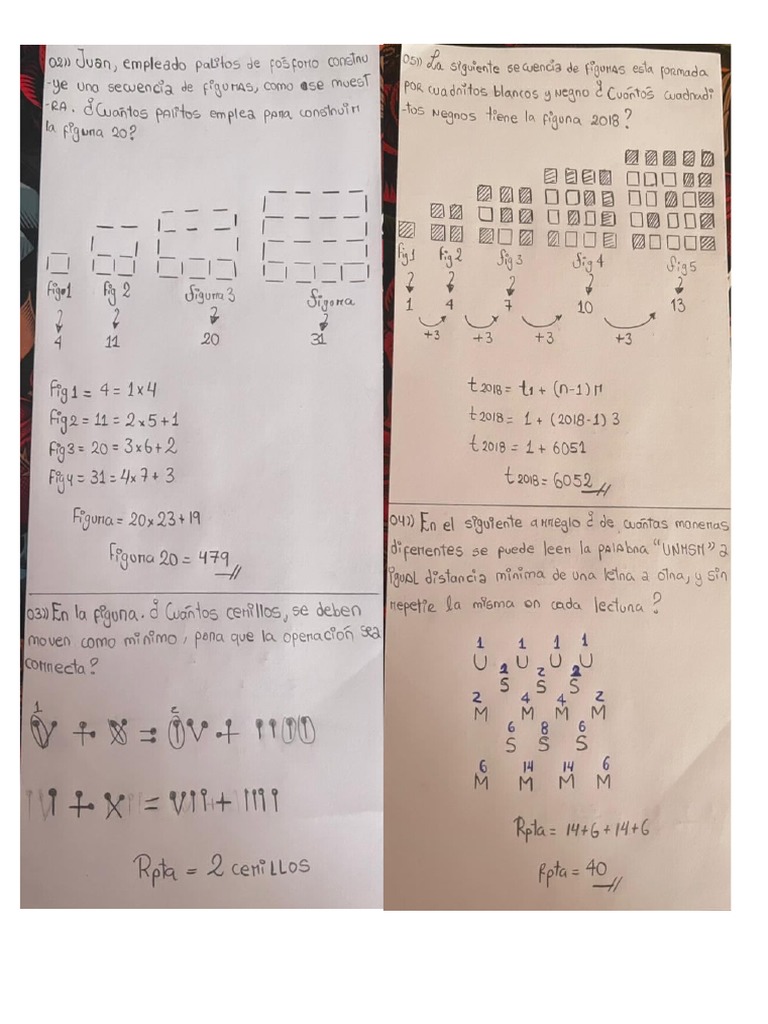 02)) Juan, empleado palitos de fosforio constru
-ye una secuencia de figuras, como ose muest
-RA. ¿Cuantos palitos emplea para construir
la figura 20?
Figo1
Fig 2
figura 3
figura
4
11
20
31
Fig1 = 4 = 1x4
Fig2 = 11 = 2x5+1
Fig3 = 20 = 3x6+2
Fig4 = 31 = 4x7+3
Figura = 20x23+19
Figura 20 = 479
03)) En la figura. ¿Cuántos cerillos, se deben
moven como minimo, para que la operación sea
correcta?
1
2
Rpta = 2 cerillos
05)) La siguiente secuencia de figuras esta formada
por cuadritos blancos y negro ¿Cuántos cuadradi
-tos negros tiene la figura 2018?
fig1
fig 2
fig 3
fig 4
fig5
1
4
7
10
13
+3
+3
+3
+3
t2018 = t1 + (n-1) r
t2018 = 1 + (2018-1) 3
t2018 = 1 + 6051
t2018 = 6052
04)) En el siguiente arreglo ¿ de cuantas maneras
diferentes se puede leer la palabra "UNMSM" a
igual distancia minima de una letra a otra, y sin
repetir la misma en cada lectura?
1 1 1 1
U U U U
2 2 2
S S S
2 4 4 2
M M M M
6 8 6
S S S
6 14 14 6
M M M M
Rpta = 14+6+14+6
Rpta = 40